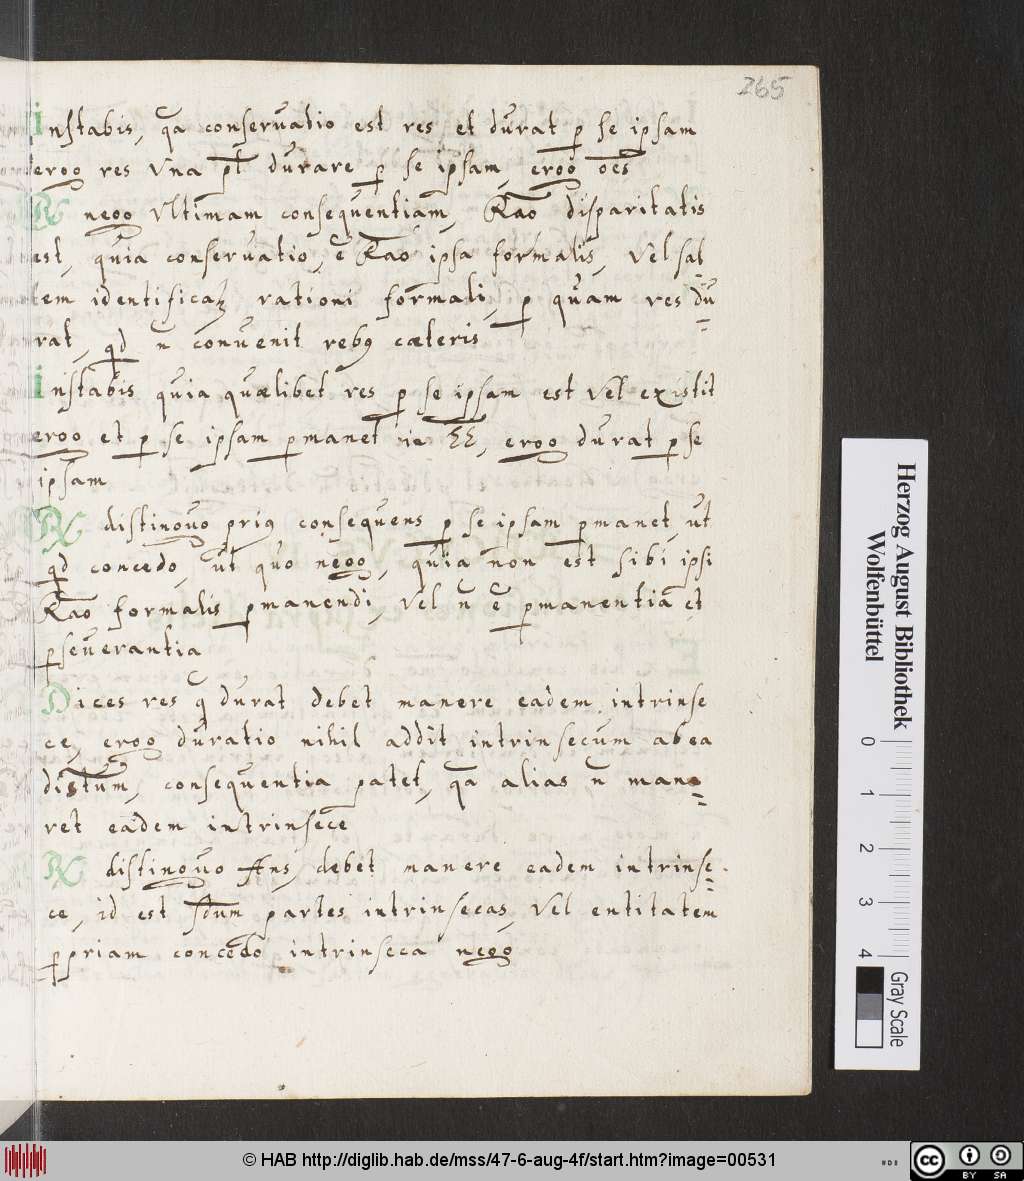 265
instabis, qa conseruatio est res et durat p se ipsam
ergo res una pt durare p se ipsam, ergo oes
R nego ultimam consequentiam, Rao disparitatis
est, quia conseruatio, e Rao ipsa formalis, vel sal
tem identificat rationi formali, p quam res du=
rat, qd n conuenit rebq cæteris
instabis quia quælibet res p se ipsam est vel existit
ergo et p se ipsam pmanet in EE, ergo durat p se
ipsam
R distinguo priq consequens p se ipsam pmanet, ut
qd concedo, ut quo nego, quia non est sibi ipsi
Rao formalis pmanendi, vel n e pmanentia et
pseuerantia
Dices res q durat debet manere eadem intrinse
ce, ergo duratio nihil addit intrinsecum ab ea
distum, consequentia patet, qa alias n mane=
ret eadem intrinsece
R distinguo Ans, debet manere eadem intrinse=
ce, id est sdum partes intrinsecas, vel entitatem
ppriam concedo intrinseca nego
Herzog August Bibliothek
Wolfenbüttel
0 1 2 3 4
Gray Scale
© HAB http://diglib.hab.de/mss/47-6-aug-4f/start.htm?image=00531
cc BY SA